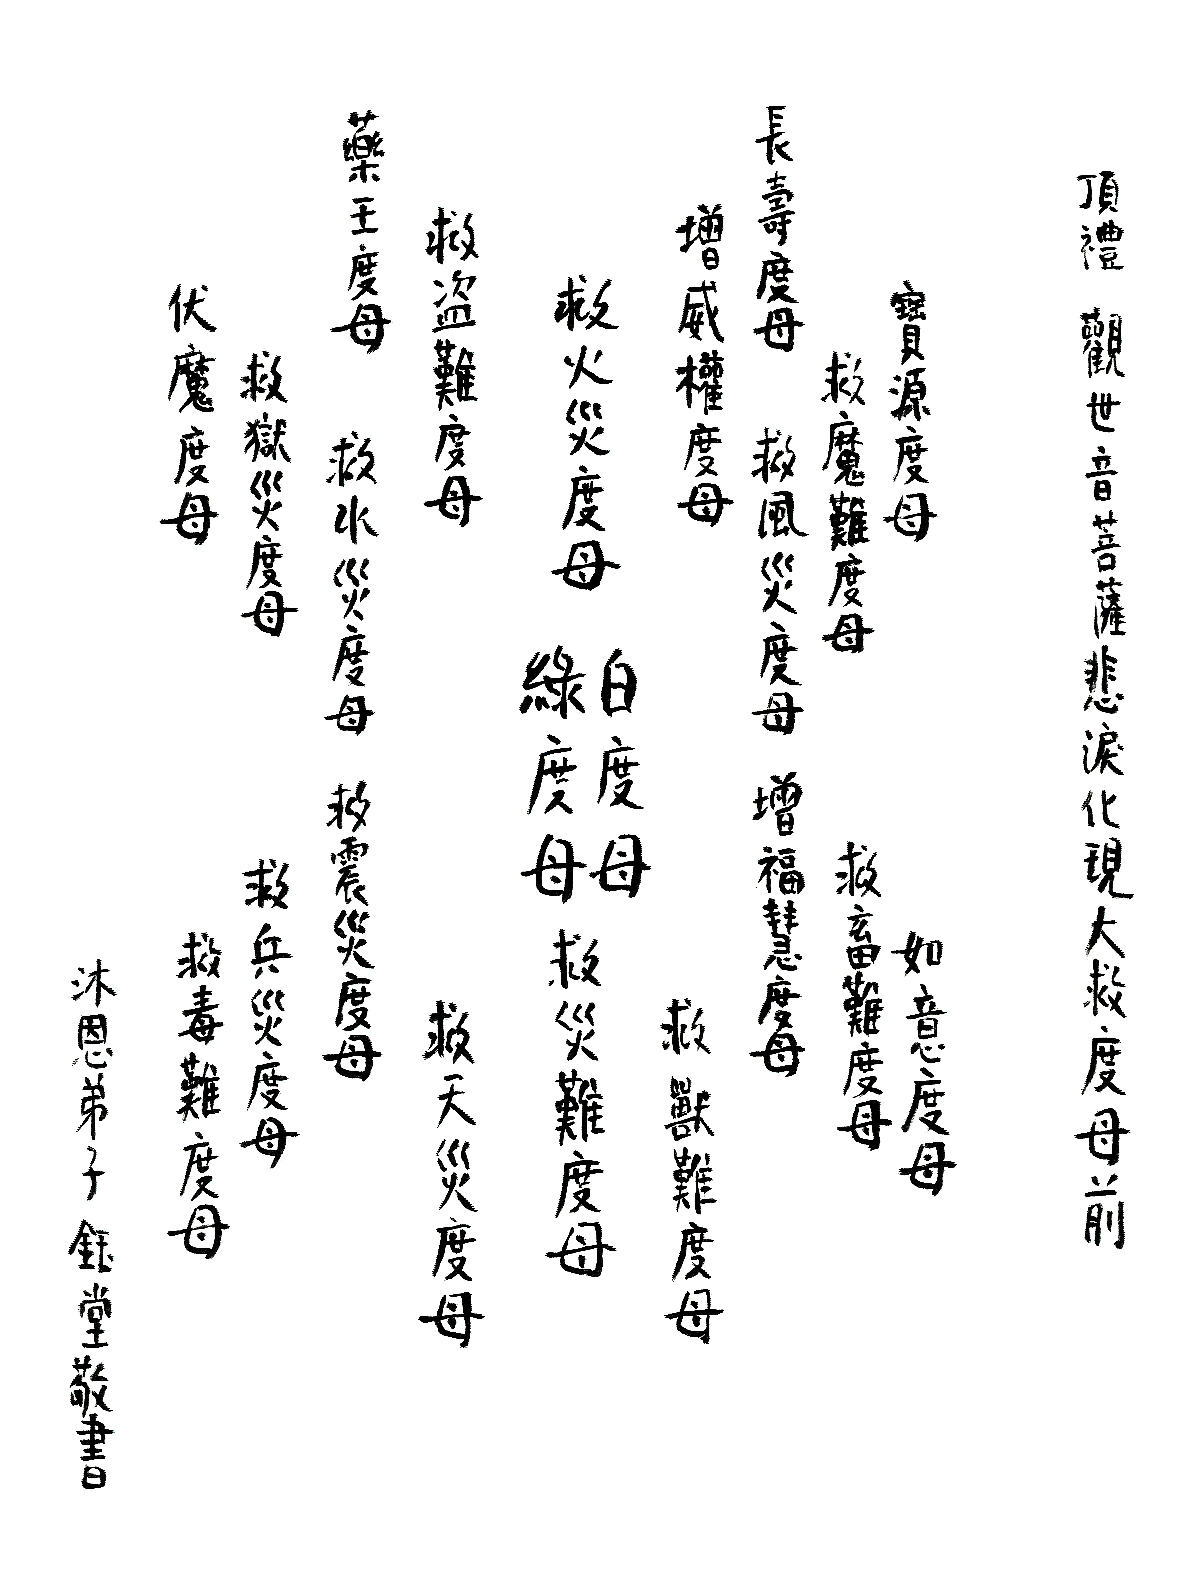 頂禮 觀世音菩薩悲淚化現大救度母前
寶源度母
如意度母
救魔難度母
救畜難度母
長壽度母
救風災度母
增福慧度母
增威權度母
救獸難度母
救火災度母
白度母
綠度母
救災難度母
救盜難度母
救天災度母
藥王度母
救水災度母
救震災度母
救獄災度母
救兵災度母
伏魔度母
救毒難度母
沐恩弟子 鈺堂敬書